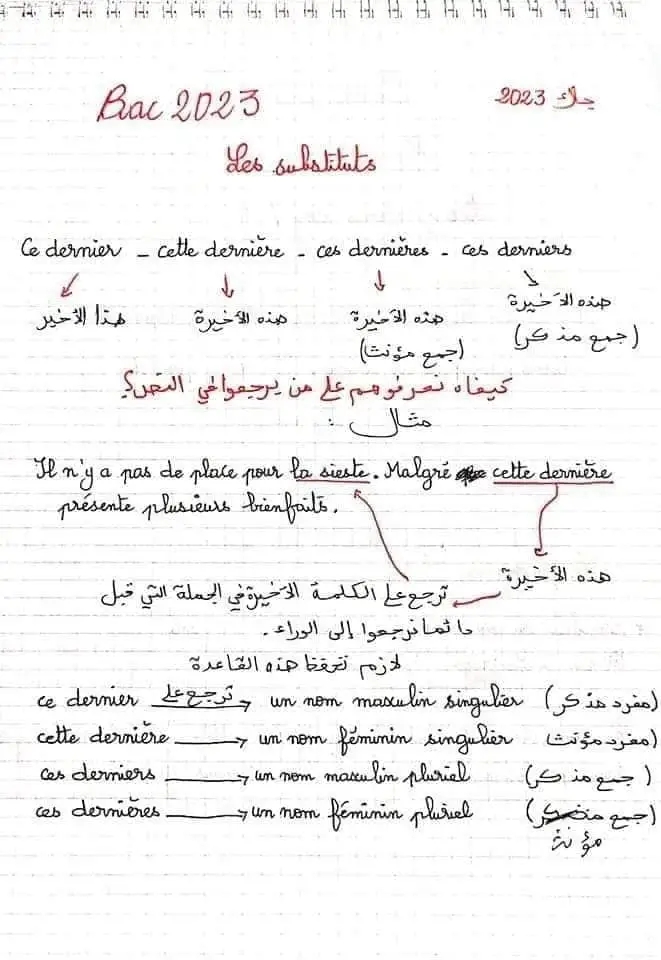 Bac 2023
باك 2023
Les substituts
Ce dernier - cette dernière - ces dernières - ces derniers
هذا الأخير هذه الأخيرة هذه الأخيرة هذه الأخيرة
(جمع مؤنث) (جمع مذكر)
كيفاه نعرفوهم على من يرجعوا في النص؟
مثال :
Il n'y a pas de place pour la sieste. Malgré cette dernière
présente plusieurs bienfaits.
هذه الأخيرة
ترجع على الكلمة الأخيرة في الجملة التي قبل
ما ثما نرجعوا إلى الوراء.
لازم نحفظ هذه القاعدة
ce dernier ترجع على un nom masculin singulier (مفرد مذكر)
cette dernière → un nom féminin singulier (مفرد مؤنث)
ces derniers → un nom masculin pluriel (جمع مذكر)
ces dernières → un nom féminin pluriel (جمع
مؤنث